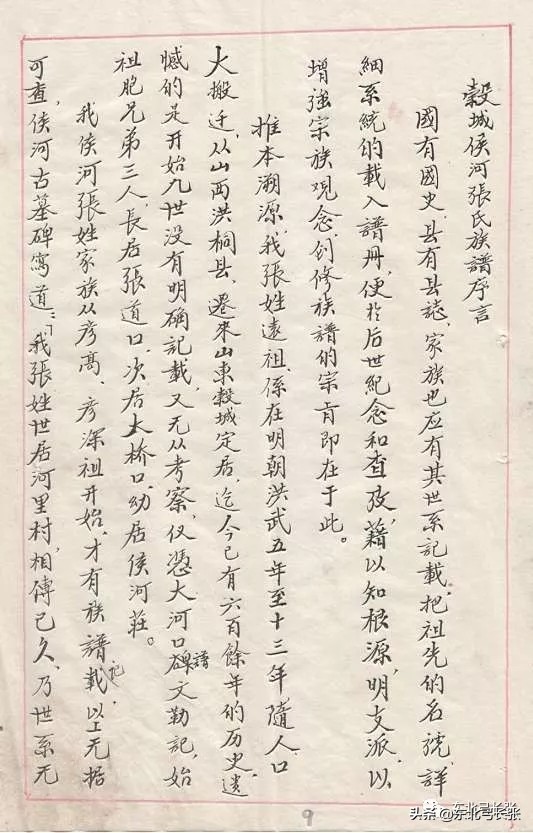 榖城侯河張氏族譜序言
國有國史,县有县誌,家族也应有其世系記載,把祖先的名號,詳
細系統的載入譜册,便於后世紀念和查攷,藉以知根源,明支派,以
增强宗族观念,创修族譜的宗旨即在于此。
推本溯源,我張姓遠祖,係在明朝洪武五年至十三年隨人口
大搬迁,从山西洪桐县,遷来山東榖城定居,迄今已有六百餘年的历史,遗
憾的是开始几世没有明确記載,又无从考察,仅憑大河口碑譜文勒記,始
祖胞兄弟三人,長居張道口,次居大桥口,幼居侯河莊。
我侯河張姓家族从彦高、彦深祖开始,才有族譜記載,以上无据
可查,侯河古墓碑寫道:「我張姓世居河里村,相傳已久,乃世系无
9
东北弓长张
头条@东北弓长张